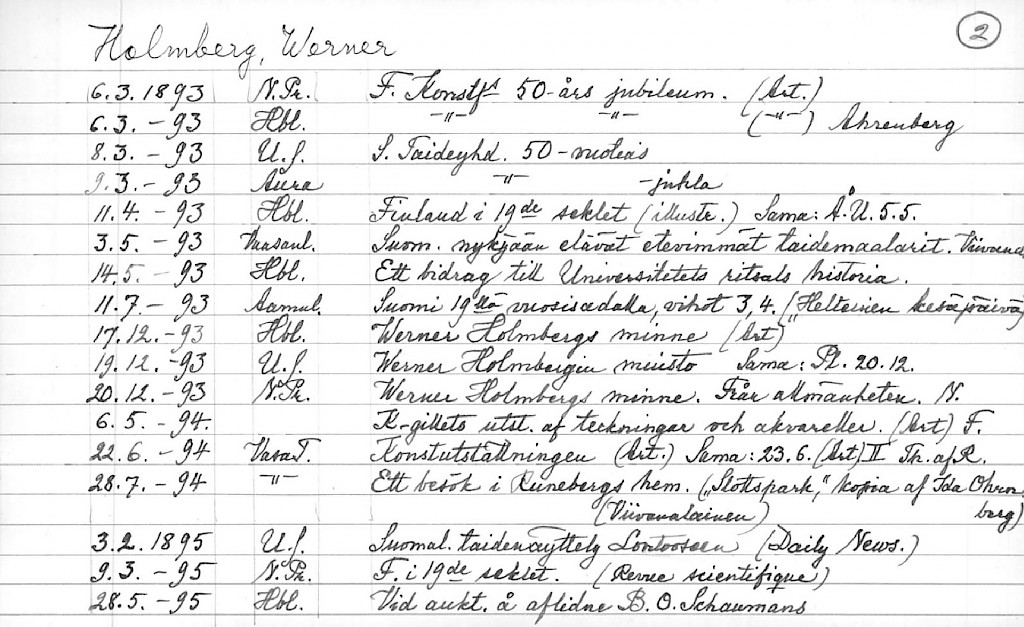 2
Holmberg, Werner
6.3.1893 N.Pr. F. Konstfs 50-års jubileum. (Art.)
6.3.-93 Hbl. -"- -"- (-"-) Ahrenberg
8.3.-93 U.S. S. Taideyhd. 50-vuotias
9.3.-93 Aura -"- -juhla
11.4.-93 Hbl. Finland i 19de seklet (illustr.) Sama: Å.U. 5.5.
3.5.-93 Vaasanl. Suom. nykyään elävät etevimmät taidemaalarit.
14.5.-93 Hbl. Ett bidrag till Universitetets ritsals historia.
11.7-93 Aamul. Suomi 19llä vuosisadalla, vihot 3,4. ("Helteinen kesäpäivä)
17.12.-93 Hbl. Werner Holmbergs minne (Art)
19.12.-93 U.S. Werner Holmbergin muisto Sama: Pl. 20.12.
20.12.-93 N.Pr. Werner Holmbergs minne. Från allmänheten. N.
6.5.-94. K-gillets utst. af teckningar och akvareller. (Art) F.
22.6.-94 Vasa T. Konstutställningen (Art.) Sama: 23.6. (Art) II Th. af R.
28.7.-94 -"- Ett besök i Runebergs hem. ("Slottspark," kopia af Ida Ohrn
(Viivanalainen) berg)
3.2.1895 U.S. Suomal. taidenäyttely Lontooseen (Daily News.)
9.3.-95 N.Pr. F. i 19de seklet. (Revue scientifique)
28.5.-95 Hbl. Vid aukt. å aflidne B.O. Schaumans